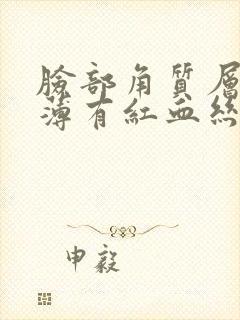 臉部角質層
薄有紅血絲
申毅